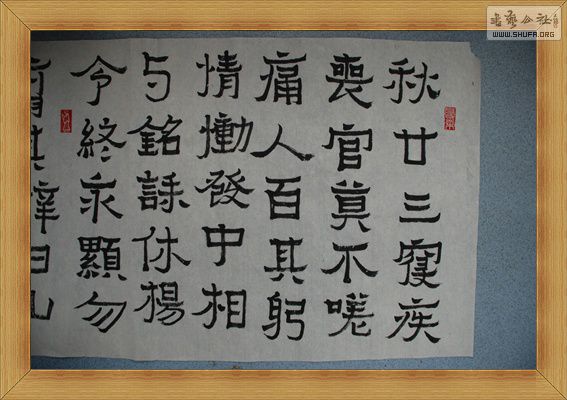 秋廿三寑疾
喪官莫不嗟
痛人百其躬
情慟發中相
与銘誄休楊
令終永顯勿
書藝公社
WWW.SHUFA.ORG